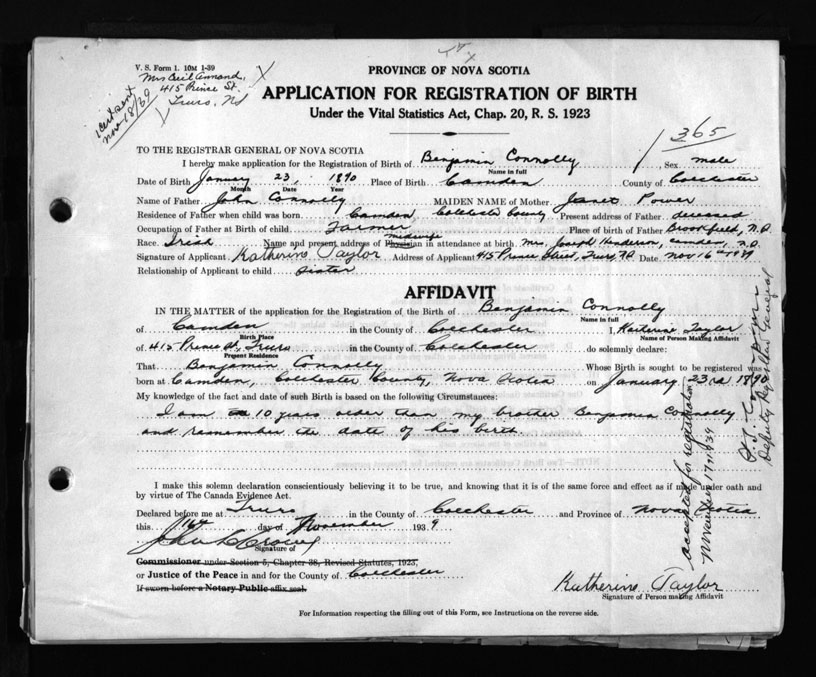 V. S. Form 1. 10M 1-39
Mrs Cecil
415 Prince St.
Truro, NS
1 cert sent
Nov 18/39
PROVINCE OF NOVA SCOTIA
APPLICATION FOR REGISTRATION OF BIRTH
Under the Vital Statistics Act, Chap. 20, R. S. 1923
365
TO THE REGISTRAR GENERAL OF NOVA SCOTIA
I hereby make application for the Registration of Birth of Benjamin Connolly, Sex male
Name in full
Date of Birth January 23, 1890 Place of Birth Camden County of Colchester
Month Date Year
Name of Father John Connolly MAIDEN NAME of Mother Janet Power
Residence of Father when child was born Camden Colchester County Present address of Father deceased
Occupation of Father at Birth of child Farmer Place of birth of Father Brookfield, N.S.
Race Irish Name and present address of Physician midwife in attendance at birth Mrs. Joseph Henderson, Camden, N.S.
Signature of Applicant Katherine Taylor Address of Applicant 415 Prince Street, Truro, NS Date Nov 16th 1939
Relationship of Applicant to child sister
AFFIDAVIT
IN THE MATTER of the application for the Registration of the Birth of Benjamin Connolly
Name in full
of Camden in the County of Colchester I, Katherine Taylor
Birth Place Name of Person Making Affidavit
of 415 Prince St, Truro in the County of Colchester do solemnly declare:
Present Residence
That Benjamin Connolly Whose Birth is sought to be registered was
born at Camden, Colchester County, Nova Scotia on January 23rd 1890
My knowledge of the fact and date of such Birth is based on the following Circumstances:
I am 10 years older than my brother Benjamin Connolly
and remember the date of his birth
I make this solemn declaration conscientiously believing it to be true, and knowing that it is of the same force and effect as if made under oath and
by virtue of The Canada Evidence Act.
Declared before me at Truro in the County of Colchester and Province of Nova Scotia
this 16th day of November 1939
Signature of
Commissioner under Section 5, Chapter 38, Revised Statutes, 1923,
or Justice of the Peace in and for the County of Colchester
If sworn before a Notary Public affix seal.
Katherine Taylor
Signature of Person making Affidavit
For Information respecting the filling out of this Form, see Instructions on the reverse side.
Accepted for registration
November 17, 1939
Deputy Registrar General